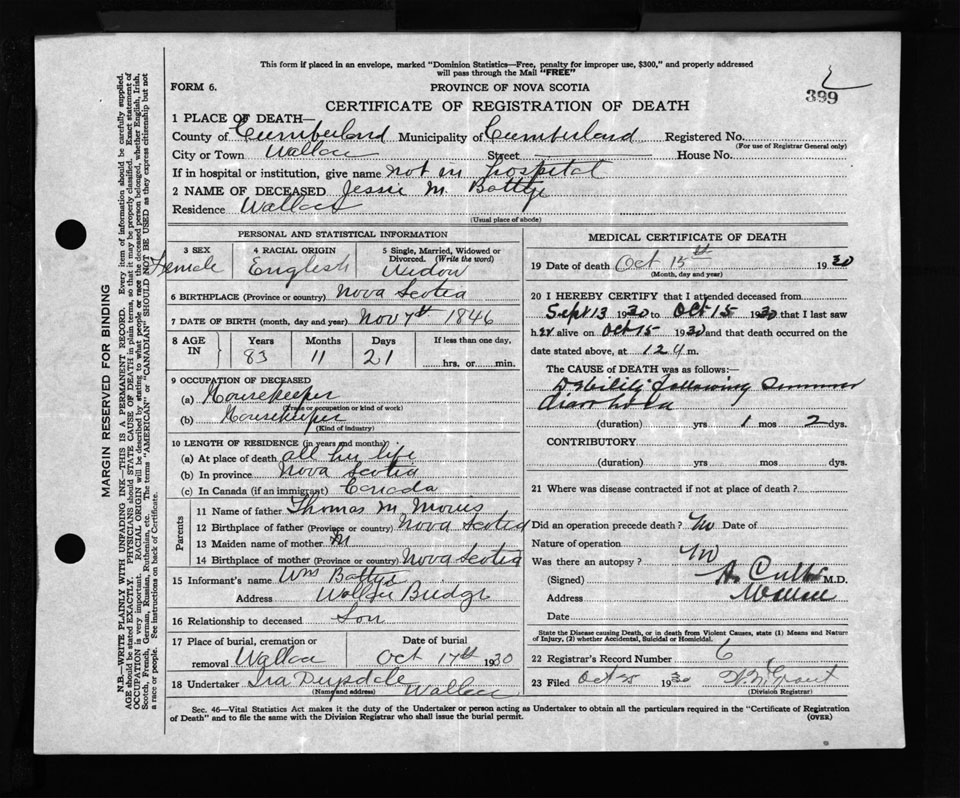 This form if placed in an envelope, marked "Dominion Statistics—Free, penalty for improper use, $300," and properly addressed
will pass through the Mail "FREE"
FORM 6.
PROVINCE OF NOVA SCOTIA
399
CERTIFICATE OF REGISTRATION OF DEATH
1 PLACE OF DEATH—
County of Cumberland Municipality of Cumberland Registered No.
(For use of Registrar General only)
City or Town Wallace Street House No.
If in hospital or institution, give name not in hospital
2 NAME OF DECEASED Jessie M. Battye
Residence Wallace
(Usual place of abode)
PERSONAL AND STATISTICAL INFORMATION
3 SEX Female
4 RACIAL ORIGIN English
5 Single, Married, Widowed or Divorced. (Write the word) Widow
6 BIRTHPLACE (Province or country) Nova Scotia
7 DATE OF BIRTH (month, day and year) Nov 7th 1846
8 AGE IN Years Months Days If less than one day,
83 11 21 hrs. or min.
9 OCCUPATION OF DECEASED
(a) Housekeeper
(Trade or occupation or kind of work)
(b) Housekeeper
(Kind of industry)
10 LENGTH OF RESIDENCE (in years and months)
(a) At place of death all her life
(b) In province Nova Scotia
(c) In Canada (if an immigrant) Canada
Parents
11 Name of father Thomas M. Morris
12 Birthplace of father (Province or country) Nova Scotia
13 Maiden name of mother
14 Birthplace of mother (Province or country) Nova Scotia
15 Informant's name Wm Battye
Address Wallace Bridge
16 Relationship to deceased Son
17 Place of burial, cremation or removal Wallace
Date of burial Oct 17th 1930
18 Undertaker Ira Wallace
(Name and address)
MEDICAL CERTIFICATE OF DEATH
19 Date of death Oct 15th 1930
(Month, day and year)
20 I HEREBY CERTIFY that I attended deceased from
Sept 13 1930 to Oct 15 1930 that I last saw
her alive on Oct 15 1930 and that death occurred on
date stated above, at 12 m.
The CAUSE OF DEATH was as follows:—
Debility following Summer
diarrhoea
(duration) yrs 1 mos 2 dys.
CONTRIBUTORY
(duration) yrs mos dys.
21 Where was disease contracted if not at place of death?
Did an operation precede death? No Date of
Nature of operation
Was there an autopsy? No
(Signed) M.D.
Address Wallace
Date
State the Disease causing Death, or in death from Violent Causes, state (1) Means and Nature
of Injury, (2) whether Accidental, Suicidal or Homicidal.
22 Registrar's Record Number 6
23 Filed Oct 1930 Grant
(Division Registrar)
Sec. 46—Vital Statistics Act makes it the duty of the Undertaker or person acting as Undertaker to obtain all the particulars required in the "Certificate of Registration
of Death" and to file the same with the Division Registrar who shall issue the burial permit. (OVER)
MARGIN RESERVED FOR BINDING
N.B.—WRITE PLAINLY WITH UNFADING INK—THIS IS A PERMANENT RECORD. Every item of information should be carefully supplied.
AGE should be stated EXACTLY. PHYSICIANS should STATE CAUSE OF DEATH in plain terms, so that it may be properly classified. Exact statement of
OCCUPATION is very important. RACIAL ORIGIN will be described by stating to what people or race the deceased person belonged, whether English, Irish,
Scotch, French, German, Russian, Ruthenian, etc. The terms "AMERICAN" or "CANADIAN" SHOULD NOT BE USED as they express citizenship but not
a race or people. See instructions on back of Certificate.